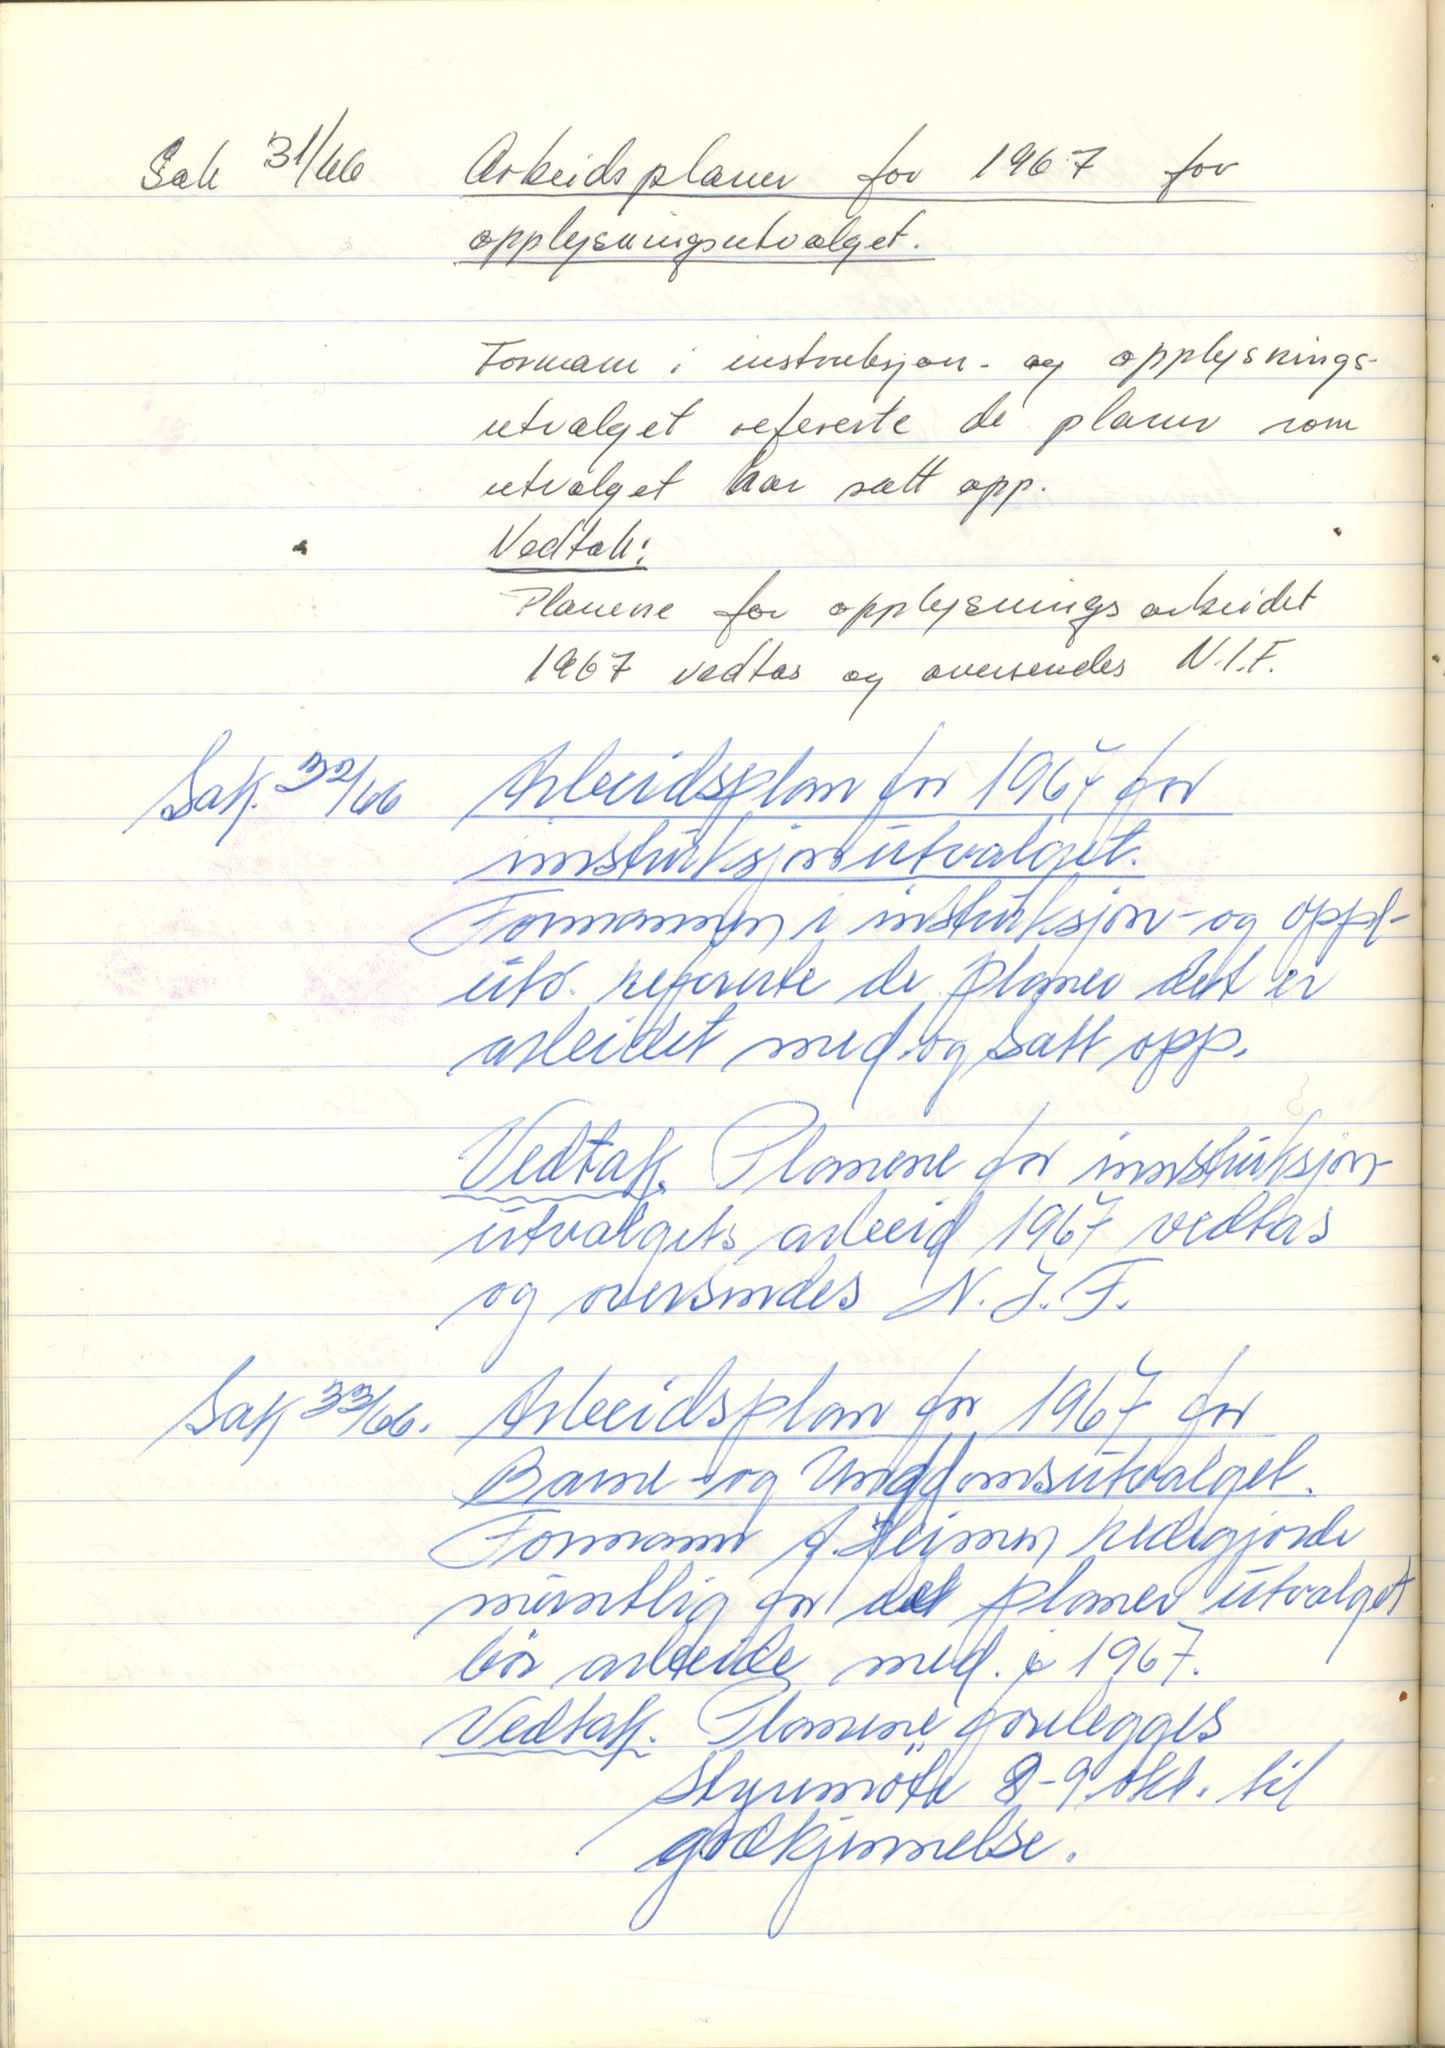 Sak 31/66 Arbeidsplaner for 1967 for
opplysningsutvalget.
Formann i instruksjon- og opplysnings-
utvalget refererte de planer som
utvalget har satt opp.
Vedtak:
Planene for opplysningsarbeidet
1967 vedtas og oversendes N.I.F.
Sak. 32/66 Arbeidsplan for 1967 for
instruksjonsutvalget.
Formannen i instruksjon- og oppl-
utv. refererte de planer det er
arbeidet med og satt opp.
Vedtak. Planene for innstruksjon-
utvalgets arbeid 1967 vedtas
og oversendes N.I.F.
Sak 33/66. Arbeidsplan for 1967 for
Barne- og Ungdomsutvalget.
Formann A. redegjorde
muntlig for de planer utvalget
bør arbeide med i 1967.
Vedtak. Planene forelegges
styremøte 8-9 okt. til
godkjennelse.